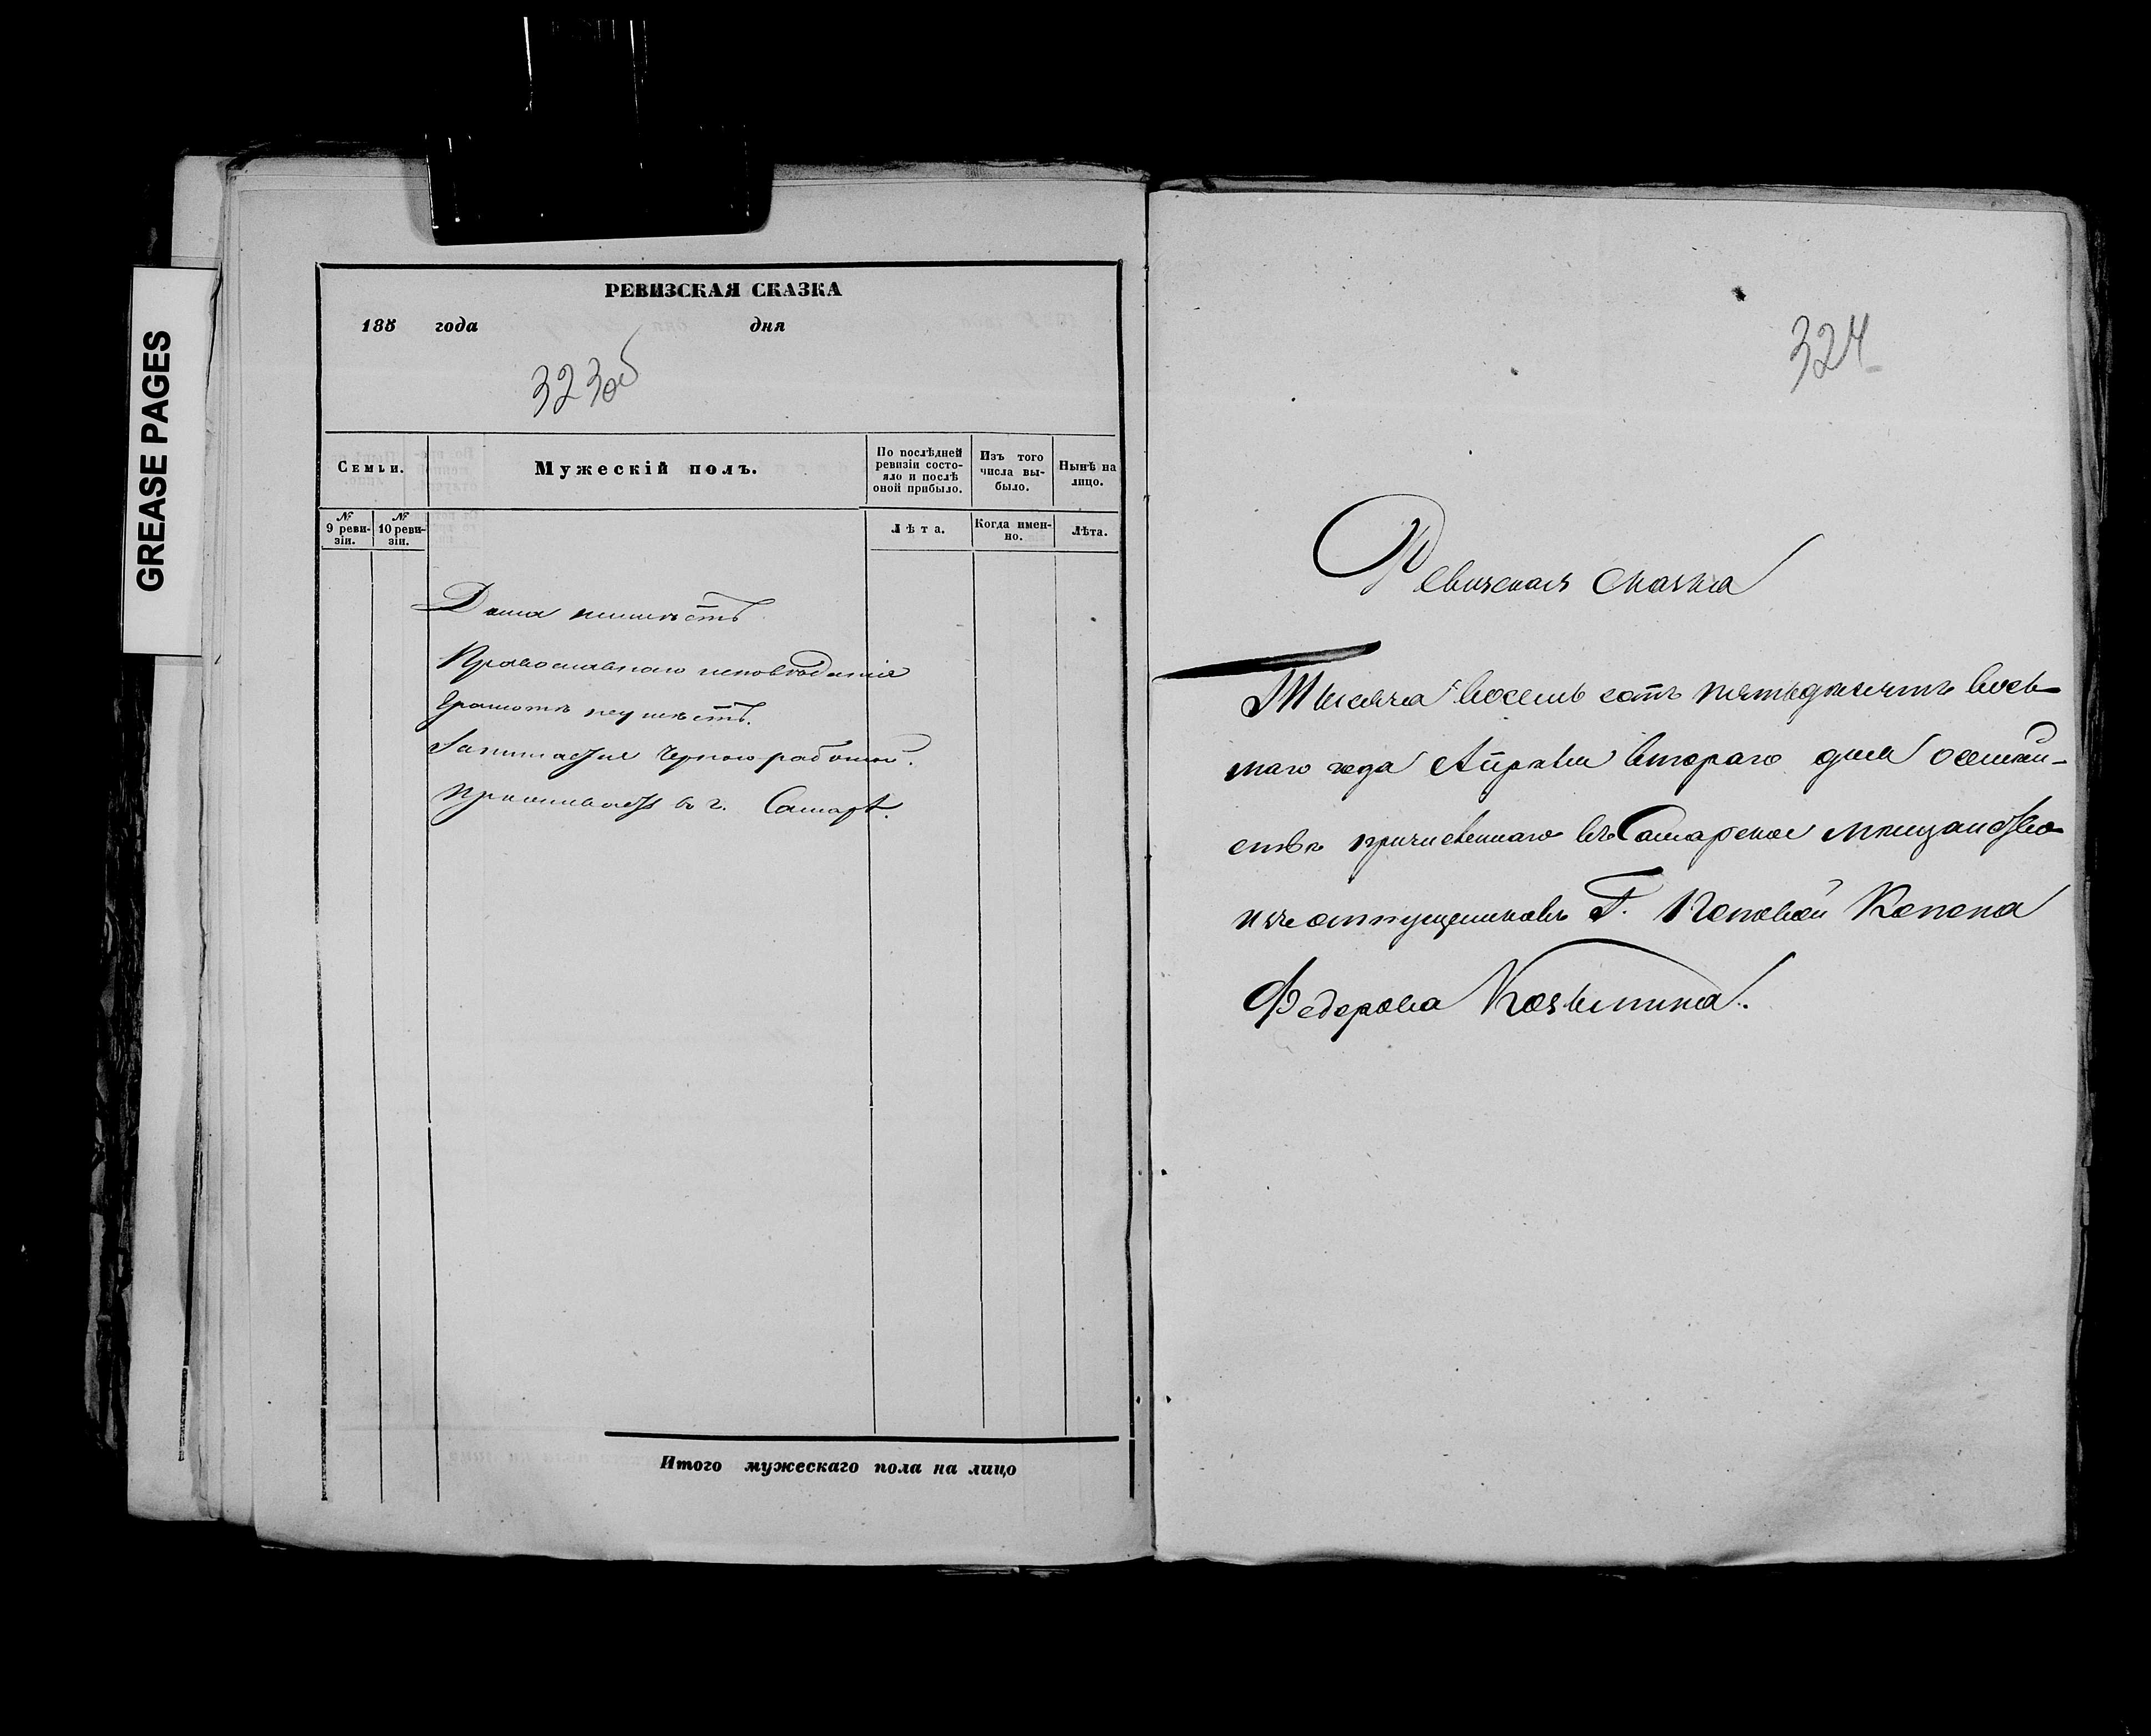 GREASE PAGES
РЕВИЗСКАЯ СКАЗКА
185 года дня
323об
Семьи.
Мужескій полъ.
По послѣдней ревизіи состо-
яло и послѣ
оной прибыло.
Изъ того
числа вы-
было.
Нынѣ на
лицо.
№ 9 реви-
зіи.
№ 10 реви-
зіи.
Лѣта.
Когда имен-
но.
Лѣта.
Дома неимѣетъ
Православнаго исповѣданія
Грамотѣ неумѣетъ.
Занимается черною работой.
Проживаетъ въ г. Самарѣ.
Итого мужескаго пола на лицо
324
Ревизская сказка
Тысяча восемь сотъ пятьдесятъ вось
маго года Апрѣля втораго дня о семей-
ствѣ причисленнаго въ Самарское мѣщанство
изъ отпущениковъ Г. Поповой Конона
Федорова